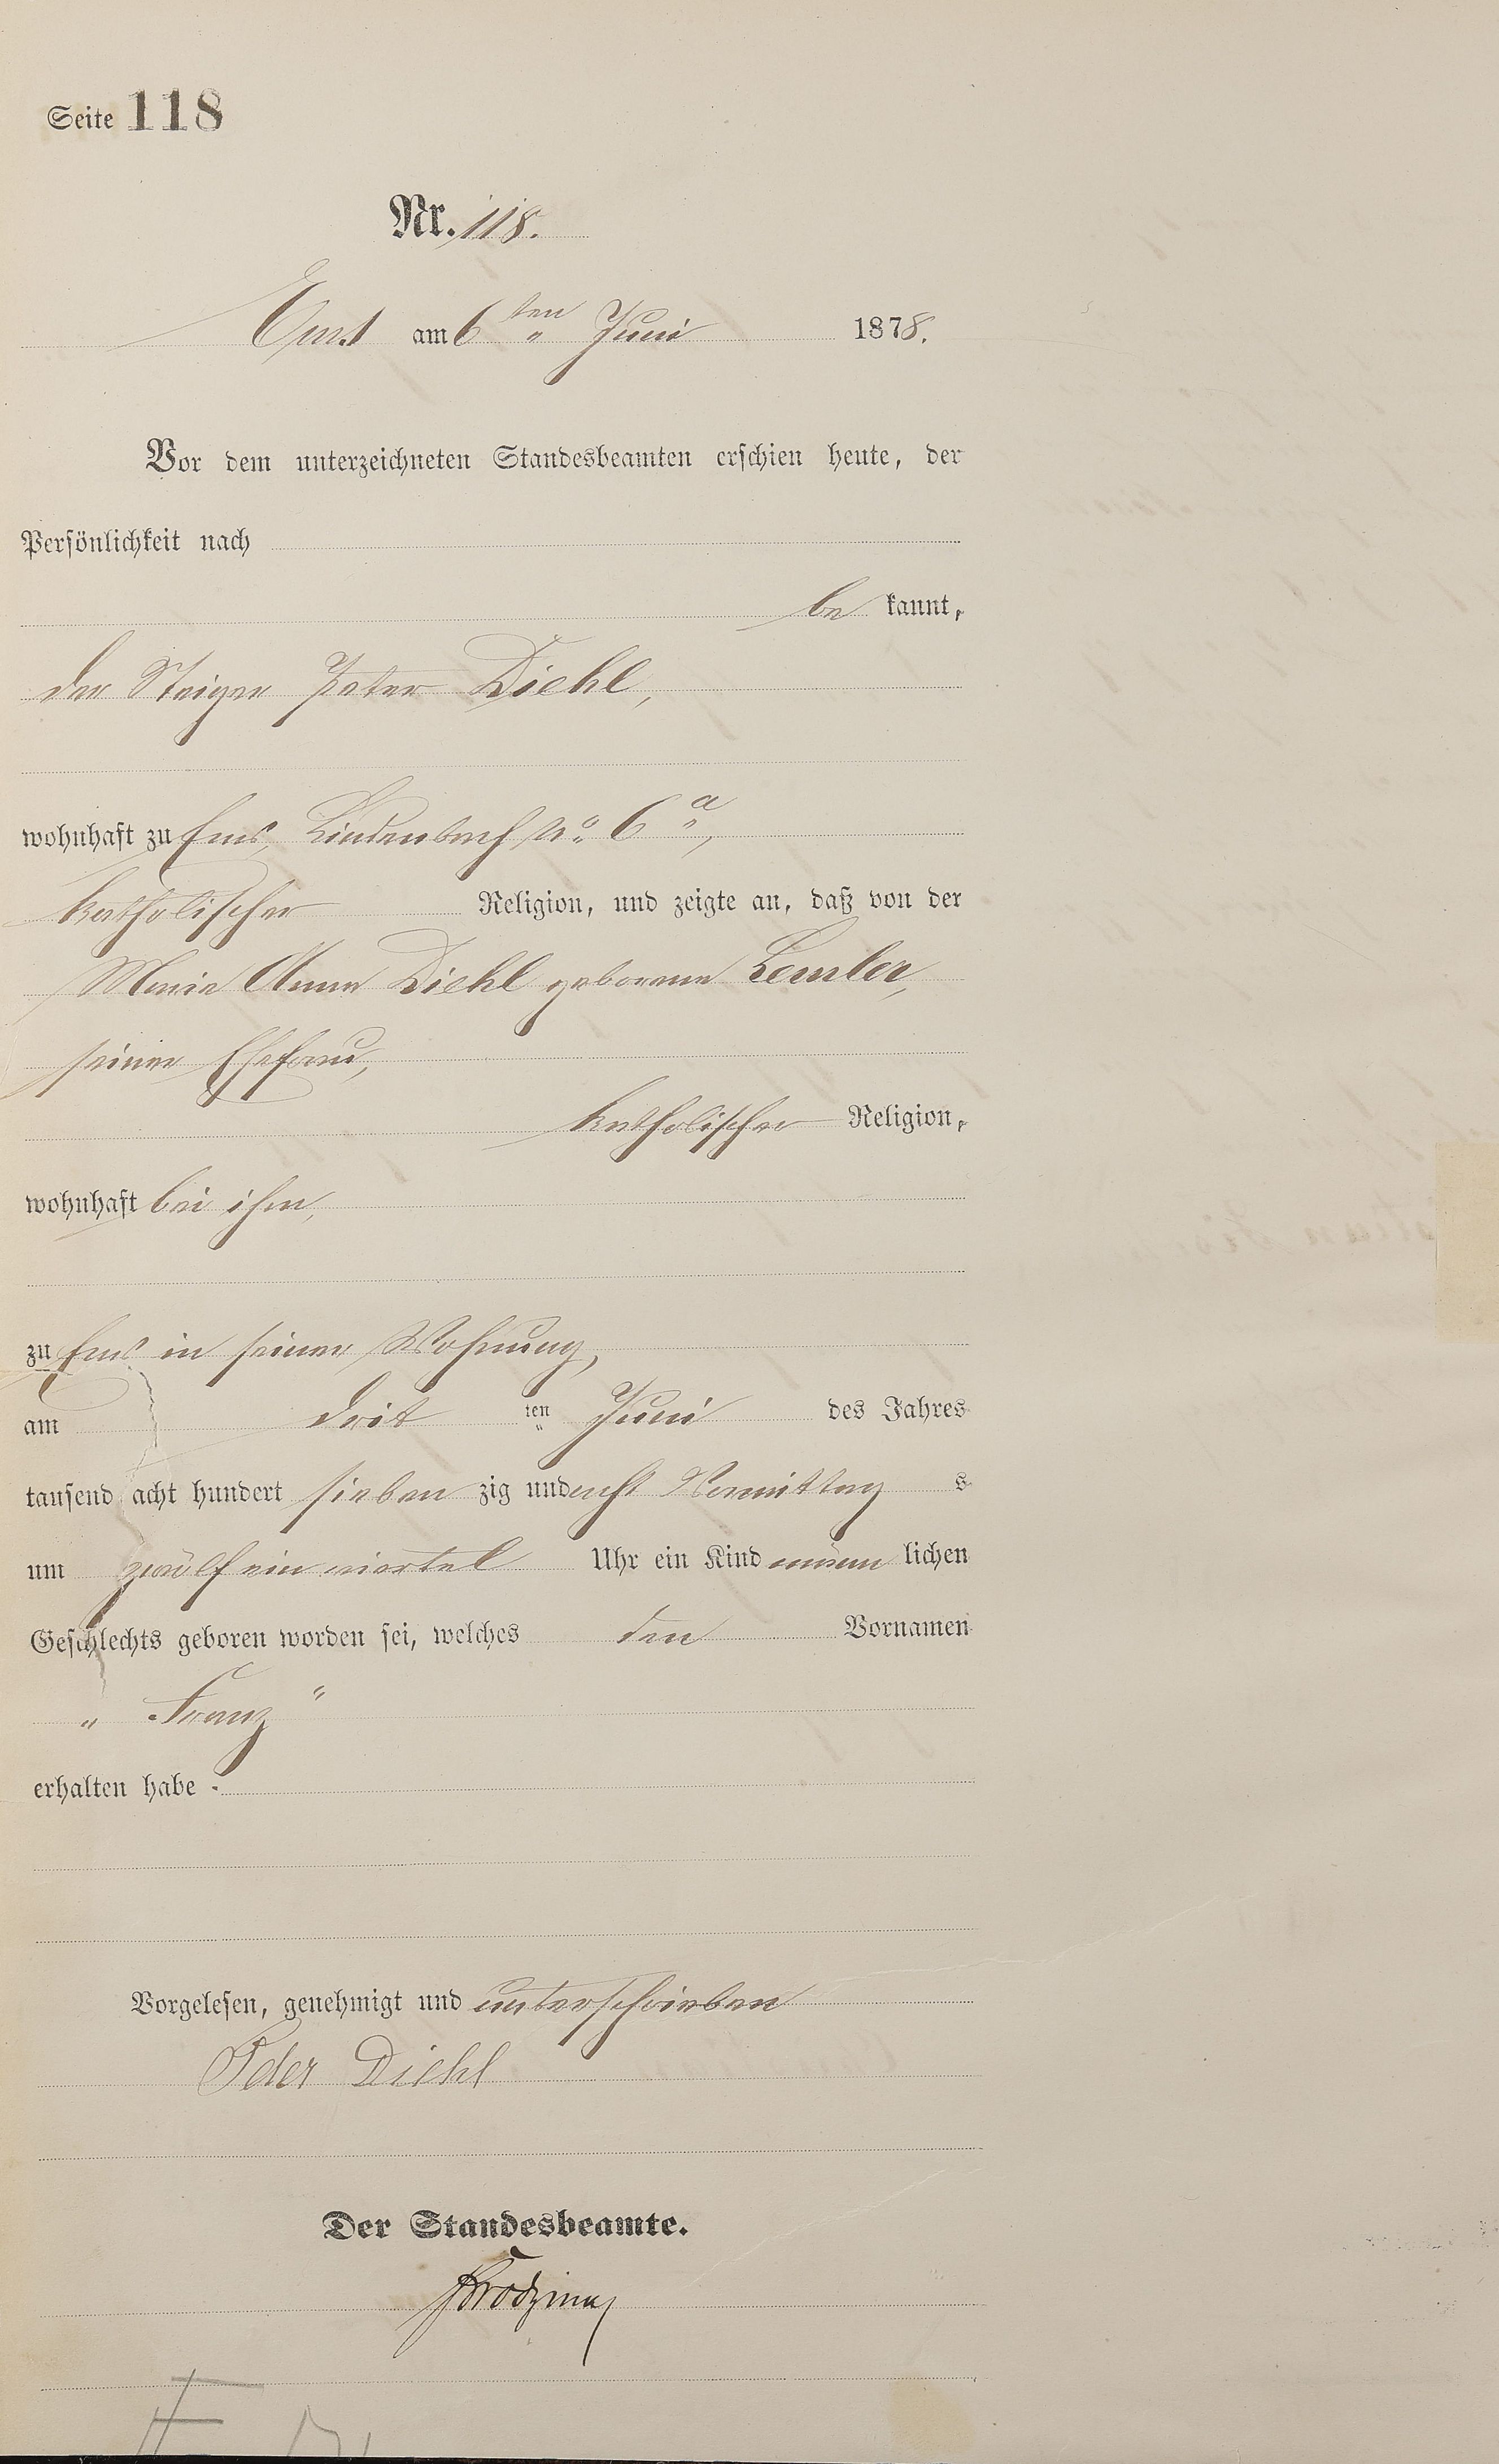 Seite 118
Nr. 118.
Ems am 6ten Juni 1878.
Vor dem unterzeichneten Standesbeamten erschien heute, der
Persönlichkeit nach
be kannt,
der Steiger Peter Diehl,
wohnhaft zu Ems, Lindenbach No 6a,
katholischer Religion, und zeigte an, daß von der
Maria Anna Diehl geborene Lemler,
seiner Ehefrau,
katholischer Religion,
wohnhaft bei ihm,
zu Ems in seiner Wohnung,
am drit ten Juni des Jahres
tausend acht hundert sieben zig und acht Vormittag s
um zwölf ein viertel Uhr ein Kind männ lichen
Geschlechts geboren worden sei, welches den Vornamen
„ Franz “
erhalten habe.
Vorgelesen, genehmigt und unterschrieben
Peter Diehl
Der Standesbeamte.